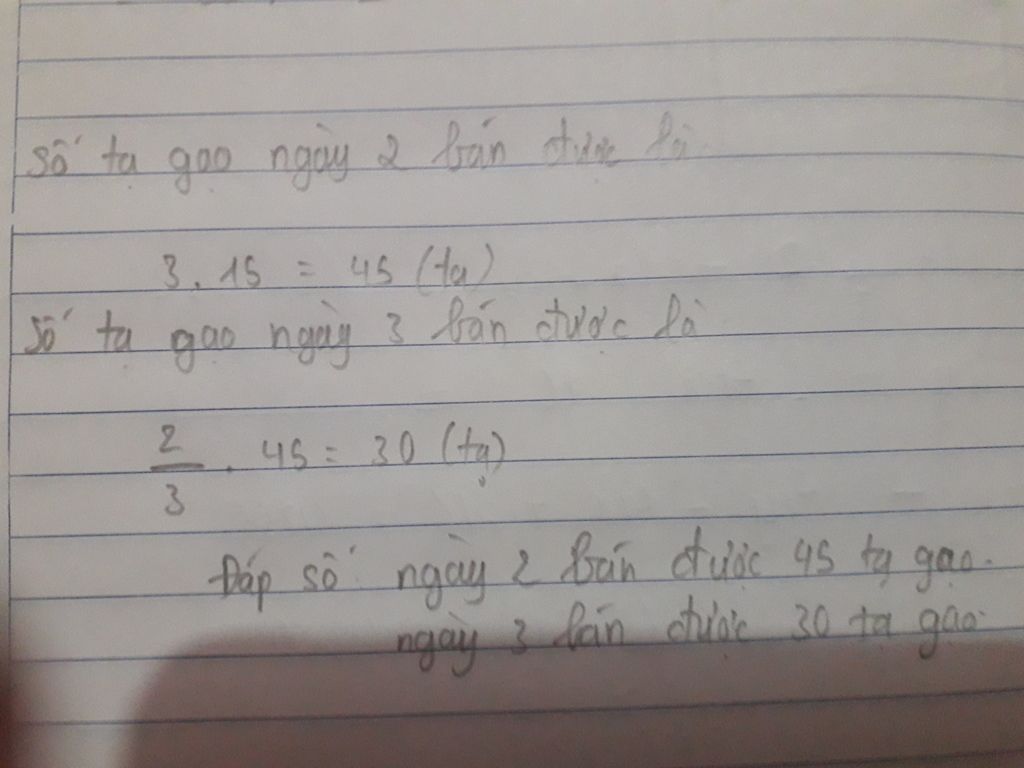 số tạ gạo ngày 2 bán được là
3 . 15 = 45 (tạ)
số tạ gạo ngày 3 bán được là
2/3 . 45 = 30 (tạ)
Đáp số ngày 2 bán được 45 tạ gạo.
ngày 3 bán được 30 tạ gạo.